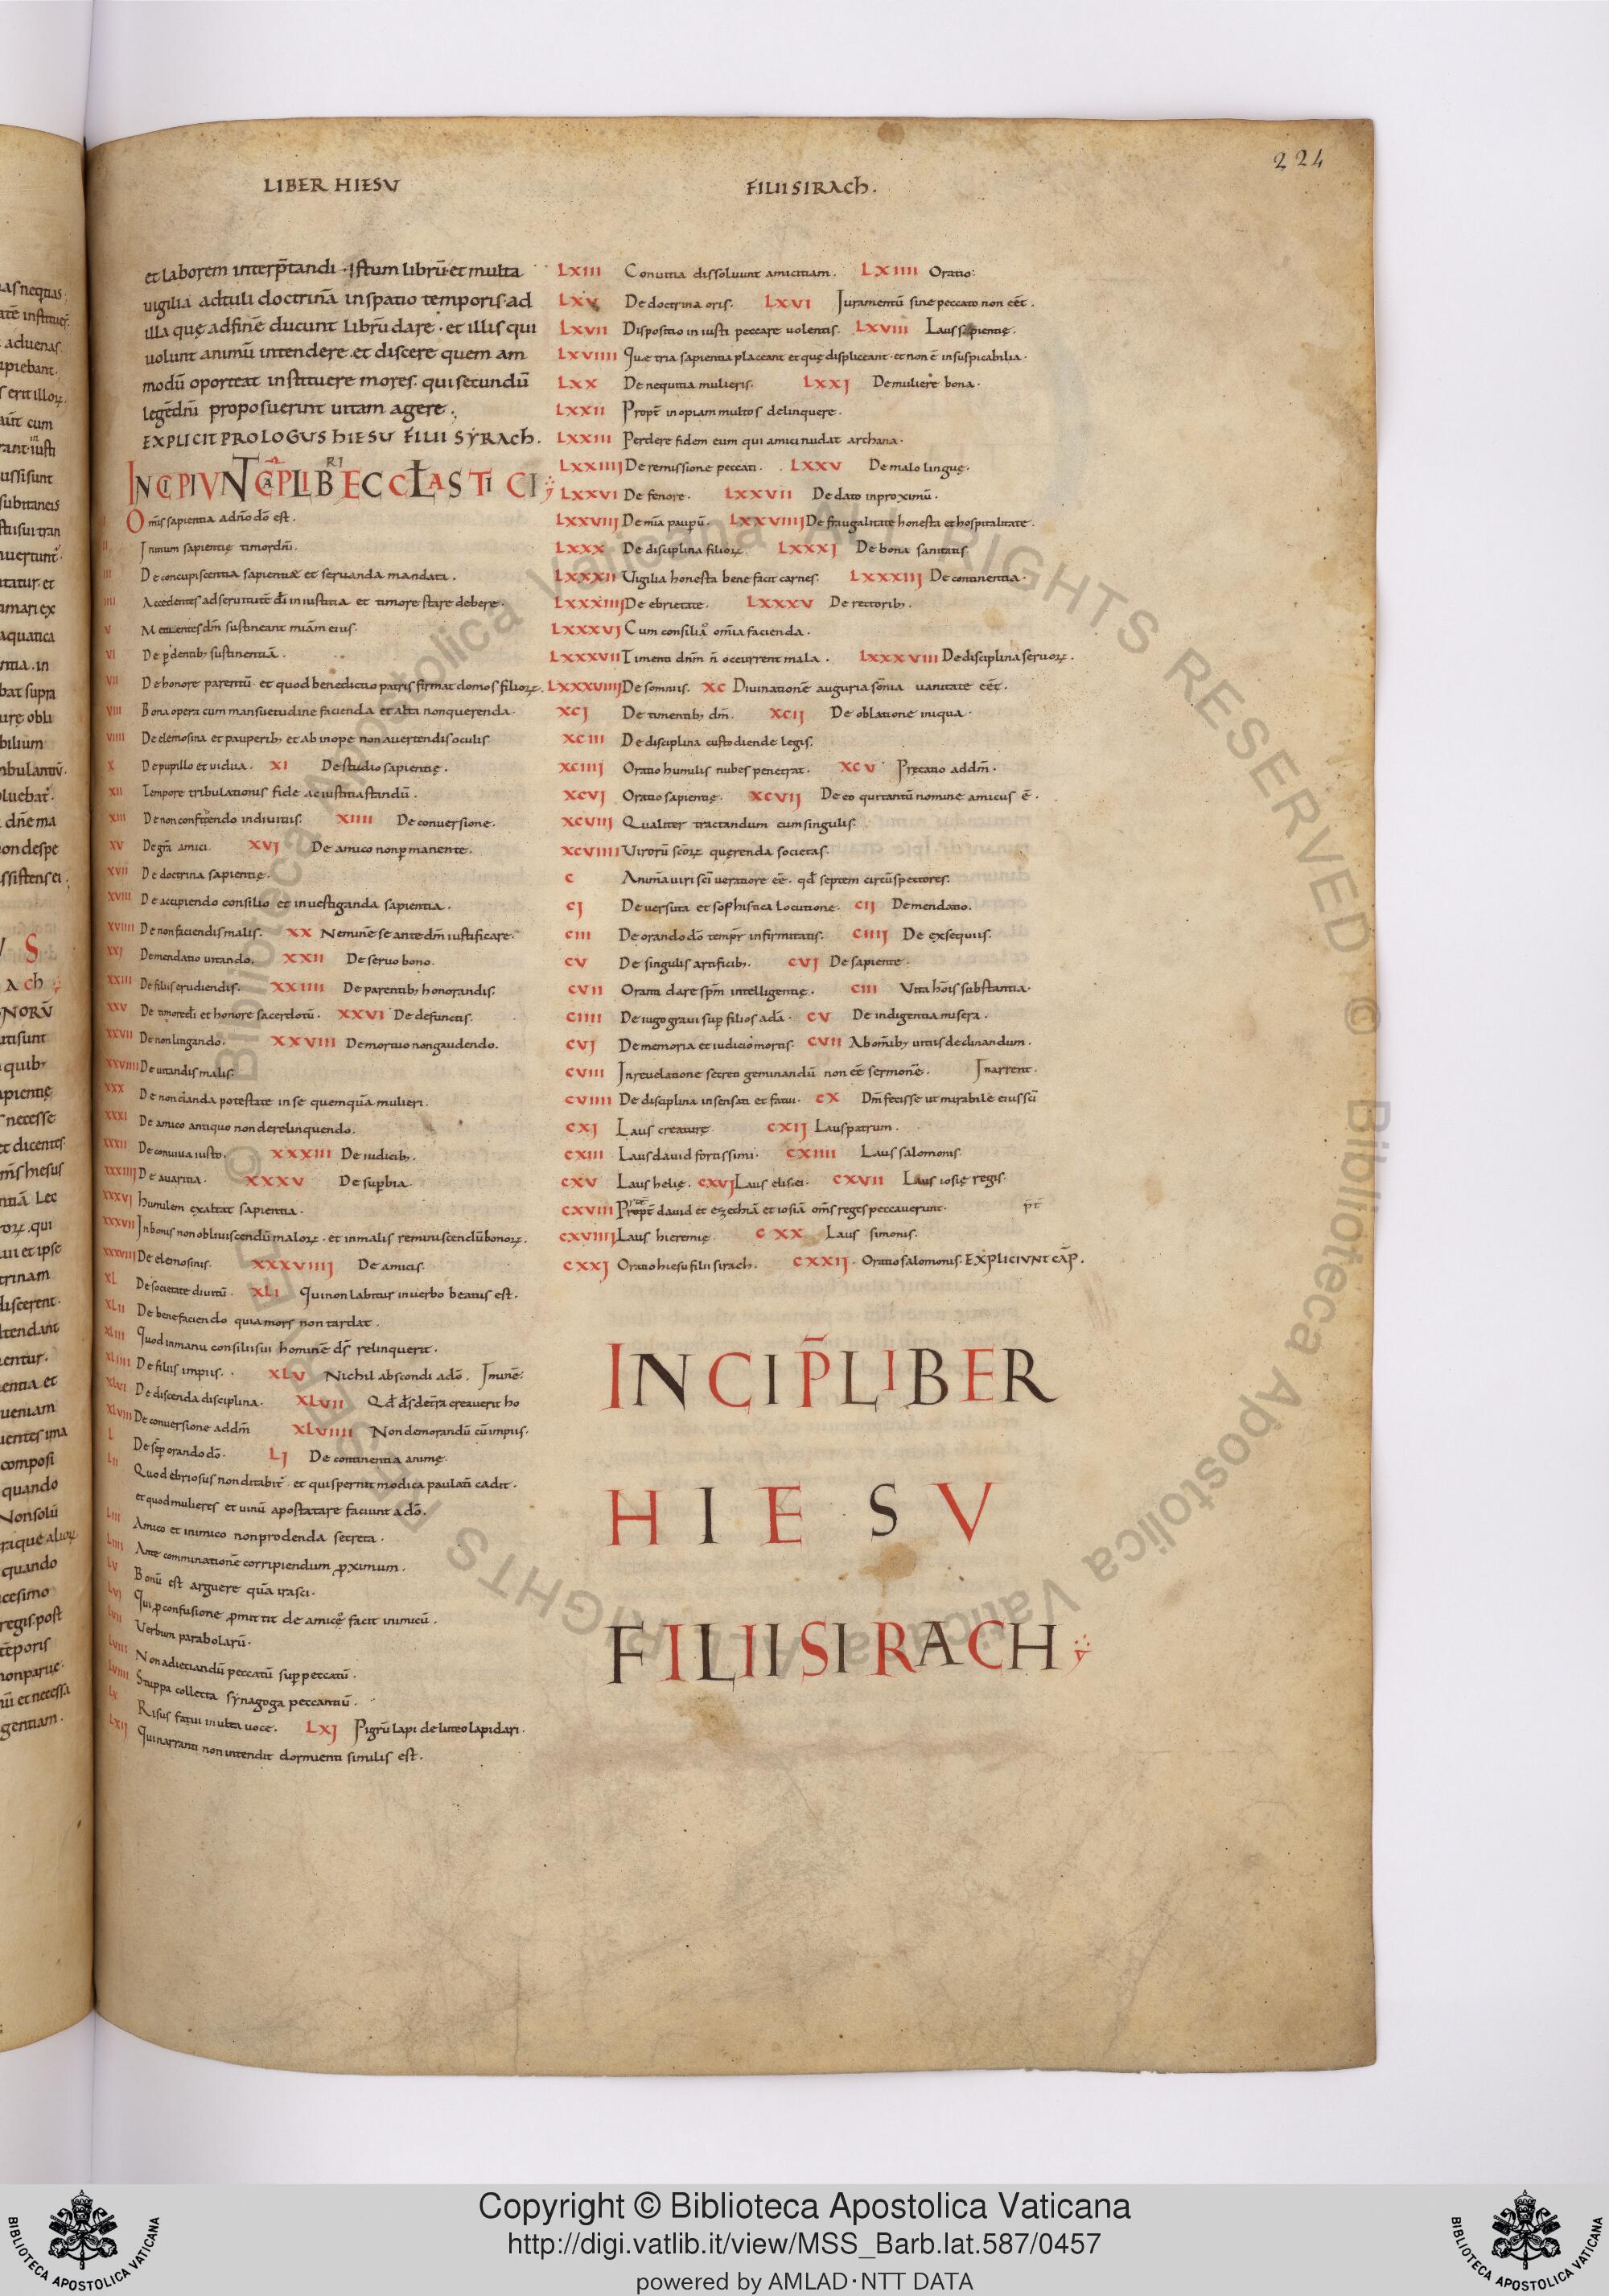 224
LIBER HIESV FILII SIRACh.
et laborem interp̄tandi · Istum librū · et multa
uigilia adtuli doctrinā in spatio temporis · ad
illa quę ad finē ducunt librū dare · et illis qui
uolunt animū intendere · et discere quem am
modū oporteat instituere mores · qui secundū
legē dn̄i proposuerint uitam agere ·
EXPLICIT PROLOGVS hIESV FILII SYRACh.
INCIPIVNT CAP̄ LIB ECCLASTICI
RI
I Om̄is sapientia a dn̄o dō est.
II Initium sapientię timor dn̄i.
III De concupiscentia sapientiæ et seruanda mandata.
IIII Accedentes ad seruitutē dī in iustitia et timore stare debere.
V Metuentes dm̄ sustineant miām eius.
VI De p̄dentib; sustinentiā.
VII De honore parentū · et quod benedictio patris firmat domos filioꝝ.
VIII Bona opera cum mansuetudine facienda et alta non querenda.
VIIII De elemosina et pauperib; et ab inope non auertendis oculis.
X De pupillo et uidua. XI De studio sapientię.
XII Tempore tribulationis fide ac iustitia standū.
XIII De non confidendo in diuitiis. XIIII De conuersione.
XV De gr̄a amici. XVJ De amico non p̱manente.
XVII De doctrina sapientię.
XVIII De accipiendo consilio et inuestiganda sapientia.
XVIIII De non faciendis malis. XX Neminē se ante dm̄ iustificare.
XXI De mendatio uitando. XXII De seruo bono.
XXIII De filiis erudiendis. XXIIII De parentib; honorandis.
XXV De timore dī et honore sacerdotū. XXVI De defunctis.
XXVII De non litigando. XXVIII De mortuo non gaudendo.
XXVIIII De uitandis malis.
XXX De non danda potestate in se quemquā mulieri.
XXXI De amico antiquo non derelinquendo.
XXXII De conuiua iusto. XXXIII De iudicib;.
XXXIIIJ De auaritia. XXXV De sup̱bia.
XXXVJ humilem exaltat sapientia.
XXXVII In bonis non obliuiscendū maloꝝ · et in malis reminiscendū bonoꝝ.
XXXVIII De elemosinis. XXXVIIIJ De amicis.
XL De societate diuitū. XLI Qui non labitur in uerbo beatus est.
XLII De benefaciendo quia mors non tardat.
XLIII Quod in manu consilii sui hominē ds̄ relinquerit.
XLIIII De filiis impiis. XLV Nichil abscondi a dō. Iminē:
XLVI De discenda disciplina. XLVII Qd̄ ds̄ de terra creauerit ho
XLVIII De conuersione ad dm̄ XLVIIII Non demorandū cū impiis.
L De sēp orando dō. LJ De continentia animę.
LII Quod ebriosus non ditabit᷑ · et qui spernit modica paulatī cadit.
et quod mulieres et uinū apostatare faciunt a dō.
LIII Amico et inimico non prodenda secreta.
LIIII Ante comminationē corripiendum ꝓximum.
LV Bonū est arguere quā irasci.
LVI Qui p̱ confusione ꝓmittit de amico facit inimicū.
LVII Verbum parabolarū.
LVIII Non adiciandū peccatū sup̱ peccatū.
LVIIII Stuppa collecta synagoga peccantiū.
LX Risus fatui in ulta uoce. LXJ Pigrū lapi de luteo lapidari.
LXIJ Qui narranti non intendit dormienti similis est.
LXIII Conuitia dissoluunt amicitiam. LXIIII Oratio:
LXV De doctrina oris. LXVI Juramentū sine peccato non eēt.
LXVII Dispositio in iusti peccare uolentis. LXVIII Laus sapientię.
LXVIIII Que tria sapientia placeant et quę displiceant · et non ē in suspicabilia.
LXX De nequitia mulieris. LXXJ De muliere bona.
LXXII Propt̄ inopiam multos delinquere.
LXXIII Perdere fidem eum qui amici nudat archana.
LXXIIIJ De remissione peccati. LXXV De malo linguę.
LXXVI De fenore. LXXVII De dato in proximū.
LXXVIIJ De mīa paup̱ū. LXXVIIIJ De fraugalitate honesta et hospitalitate.
LXXX De disciplina filioꝝ. LXXXJ De bona sanitatis
LXXXII Vigilia honesta bene facit carnes. LXXXIIJ De continentia.
LXXXIIIJ De ebrietate. LXXXV De rectorib;.
LXXXVJ Cum consilia om̄ia facienda.
LXXXVII Timenti dn̄m n̄ occurrent mala. LXXXVIII De disciplina seruoꝝ.
LXXXVIIIJ De somniis. XC Diuinationē auguria sōnia uanitate eēt.
XCJ De timentib; dm̄. XCIJ De oblatione iniqua.
XCIII De disciplina custodiende legis.
XCIIIJ Oratio humilis nubes penetrat. XCV Precatio ad dm̄.
XCVJ Oratio sapientię. XCVIJ De eo qui tantū nomine amicus ē.
XCVIIJ Qualiter tractandum cum singulis.
XCVIIII Virorū sc̄oꝝ querenda societas.
C Animā uiri sc̄i ueratiore eē · qd̄ septem circūspectores.
CJ De uersuta et sophistica locutione. CIJ De mendatio.
CIII De orando dō tempr̄ infirmitatis. CIIIJ De exsequiis.
CV De singulis artificib;. CVJ De sapiente.
CVII Oranti dare sp̄m intelligentię. CIII Vita hōis substantia.
CIIII De iugo graui sup̱ filios adā. CV De indigentia misera.
CVJ De memoria et iudicio mortis. CVII Ab om̄ib; uitiis declinandum.
CVIII In reuelatione secreti geminandū non eē sermonē. Inarrent.
CVIIII De disciplina insensati et fatui. CX Dm̄ fecisse ut mirabile eius sc̄i
CXJ Laus creaturę. CXIJ Laus patrum.
CXIII Laus dauid fortissimi. CXIIII Laus salomonis.
CXV Laus helię. CXVJ Laus elisei. CXVII Laus iosię regis.
CXVIII Propt̄ dauid et ezechiā et iosiā om̄s reges peccauerunt. p̄t
CXVIIIJ Laus hieremię CXX Laus simonis.
CXXJ Oratio hiesu filii sirach. CXXIJ. Oratio salomonis. EXPLICIVNT CAP̄.
INCIP̄ LIBER
HIESV
FILII SIRACH
Copyright © Biblioteca Apostolica Vaticana
http://digi.vatlib.it/view/MSS_Barb.lat.587/0457
powered by AMLAD·NTT DATA